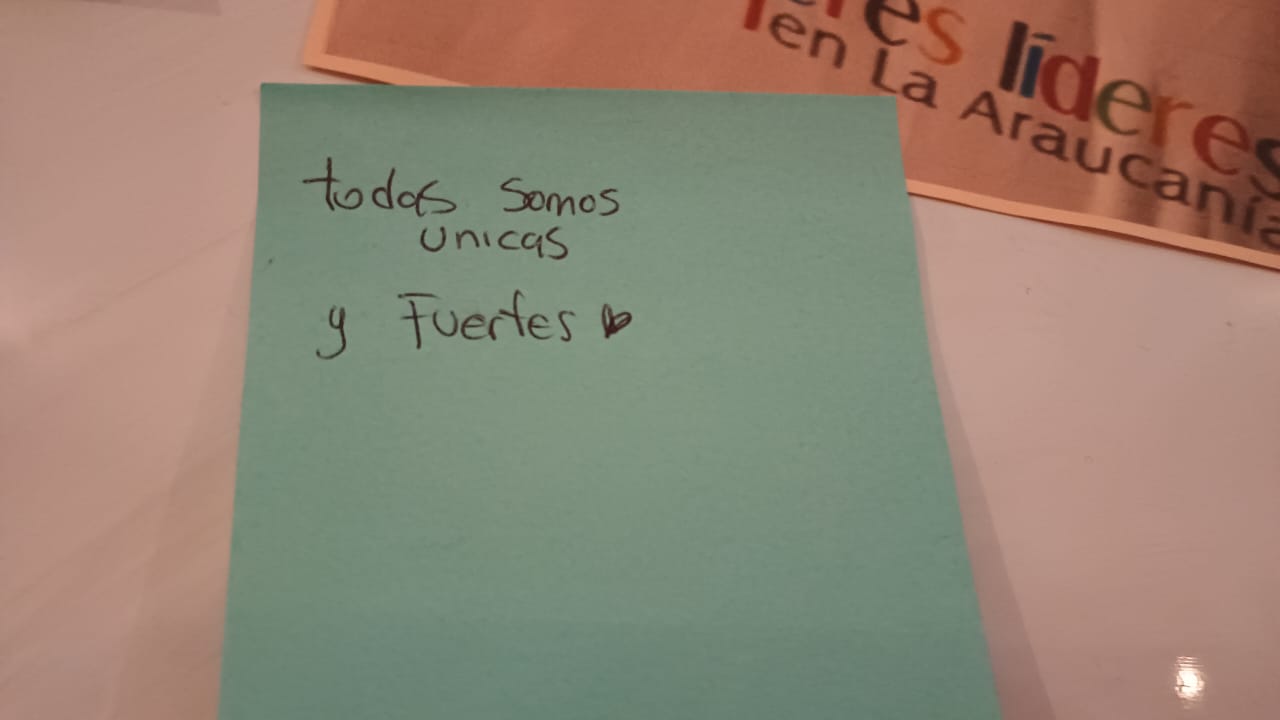 líderes
en La Araucanía
todas somos
unicas
y Fuertes